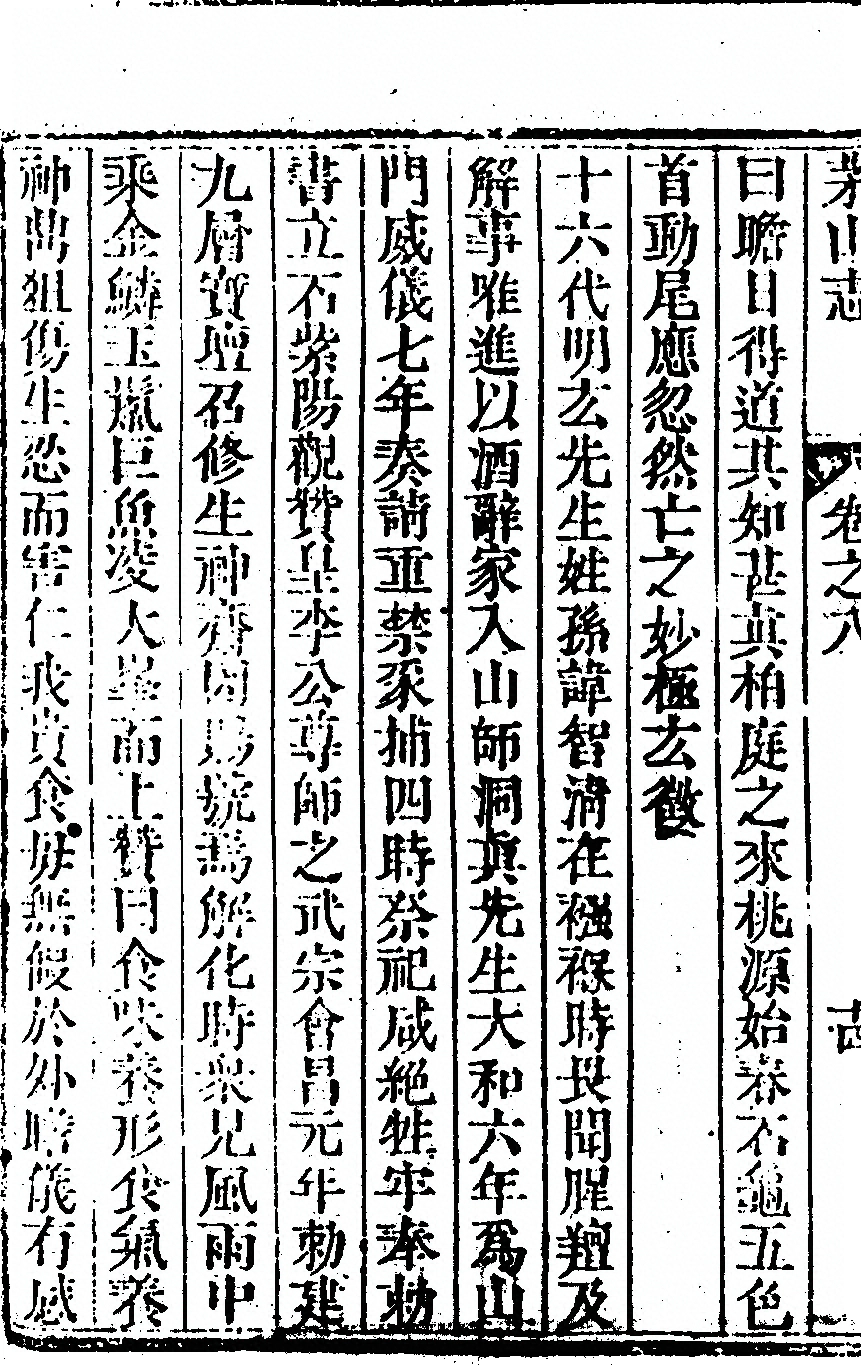 茅山志 卷之八 古
曰瞻目得道其知甚真柏庭之來桃源始春石龜五色
首動尾應忽然亡之妙極玄徵
十六代明玄先生姓孫諱智清在襁褓時畏聞腥羶及
解事唯進以酒辭家入山師洞真先生大和六年為山
門威儀七年奏請重禁采捕四時祭祀咸絶牲牢奉勅
書立石紫陽觀贊皇李公尊師之武宗會昌元年勅建
九層寶壇召修生神齋因賜號焉解化時衆見風雨中
乘金鱗玉鬣巨魚凌大峯而上贊曰食味養形食氣養
神芻狙傷生恐而害仁我貴食母無假於外瞻儀有感